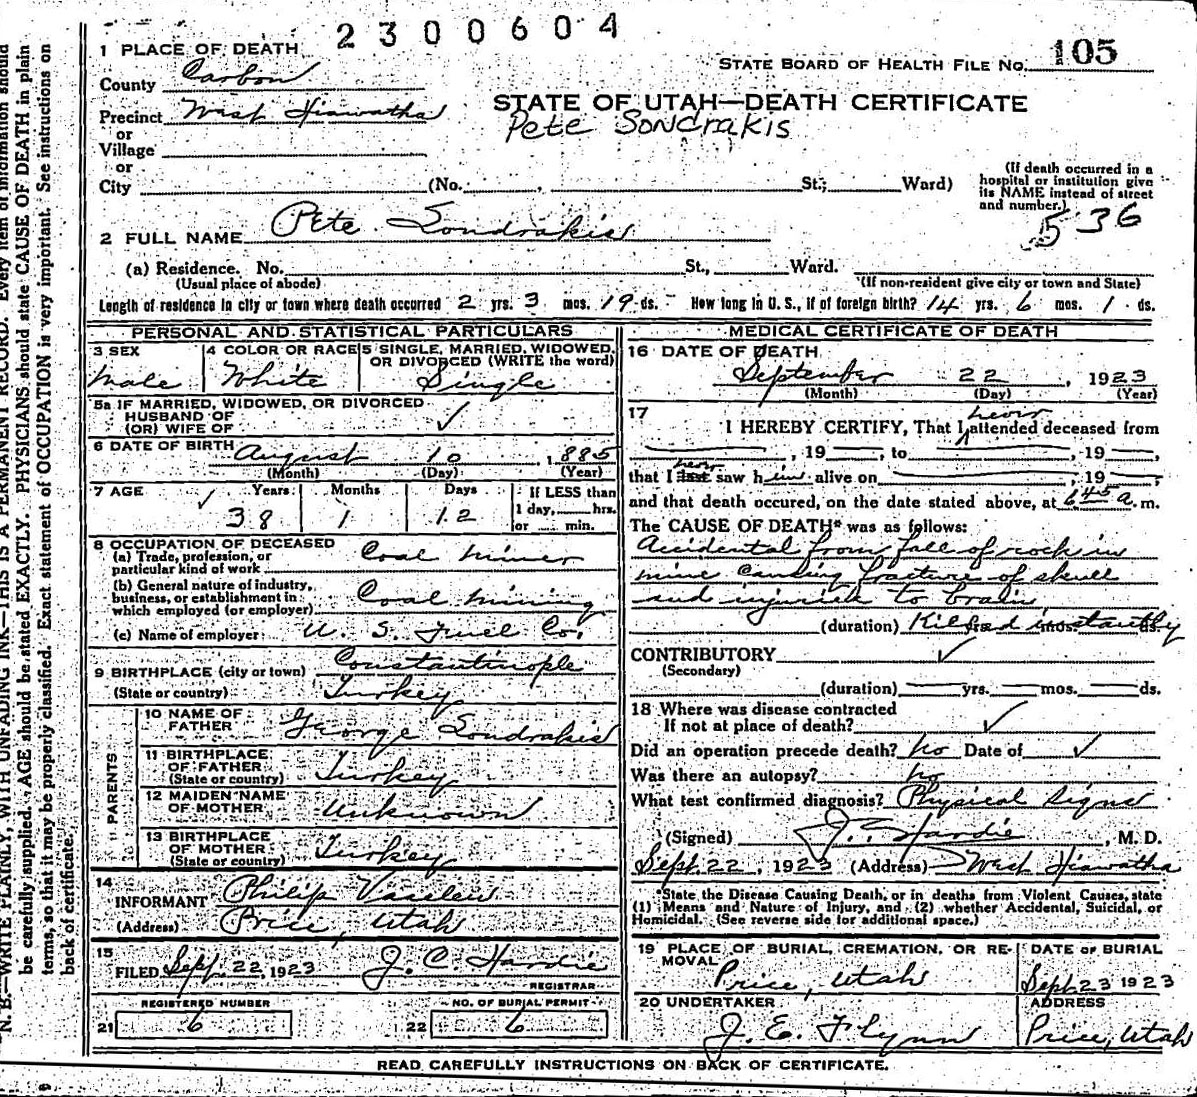 2300604
1 PLACE OF DEATH
STATE BOARD OF HEALTH FILE No. 105
County Carbon
STATE OF UTAH—DEATH CERTIFICATE
Precinct West Hiawatha
Pete Sondrakis
or
Village
or
City (No. , St.; Ward)
(If death occurred in a hospital or institution give its NAME instead of street and number.)
536
2 FULL NAME Pete Sondrakis
(a) Residence. No. St., Ward.
(Usual place of abode) (If non-resident give city or town and State)
Length of residence in city or town where death occurred 2 yrs. 3 mos. 19 ds. How long in U. S., if of foreign birth? 14 yrs. 6 mos. 1 ds.
PERSONAL AND STATISTICAL PARTICULARS
3 SEX
Male
4 COLOR OR RACE
White
5 SINGLE, MARRIED, WIDOWED,
OR DIVORCED (WRITE the word)
Single
5a IF MARRIED, WIDOWED, OR DIVORCED
HUSBAND OF
(OR) WIFE OF ✓
6 DATE OF BIRTH August 10, 1885
(Month) (Day) (Year)
7 AGE ✓ Years Months Days If LESS than
38 1 12 1 day, hrs.
or min.
8 OCCUPATION OF DECEASED
(a) Trade, profession, or
particular kind of work Coal miner
(b) General nature of industry,
business, or establishment in
which employed (or employer) Coal mining
(c) Name of employer U. S. Fuel Co.
9 BIRTHPLACE (city or town) Constantinople
(State or country) Turkey
PARENTS
10 NAME OF
FATHER George Sondrakis
11 BIRTHPLACE
OF FATHER
(State or country) Turkey
12 MAIDEN NAME
OF MOTHER Unknown
13 BIRTHPLACE
OF MOTHER
(State or country) Turkey
14
INFORMANT Philip
(Address) Price, Utah
15
FILED Sept. 22, 1923 J. C. Hardie
REGISTRAR
REGISTERED NUMBER
21 6
NO. OF BURIAL PERMIT
22 6
MEDICAL CERTIFICATE OF DEATH
16 DATE OF DEATH
September 22, 1923
(Month) (Day) (Year)
17 never
I HEREBY CERTIFY, That I attended deceased from
, 19 , to , 19 ,
that I last never saw him alive on , 19 ,
and that death occured, on the date stated above, at 6 45 a. m.
The CAUSE OF DEATH* was as follows:
Accidental from fall of rock in
mine causing fracture of skull
and injuries to brain
(duration) yrs. mos. ds. Killed instantly
CONTRIBUTORY ✓
(Secondary)
(duration) yrs. mos. ds.
18 Where was disease contracted
If not at place of death? ✓
Did an operation precede death? no Date of ✓
Was there an autopsy? no
What test confirmed diagnosis? Physical Signs
(Signed) J. C. Hardie, M. D.
Sept. 22, 1923 (Address) West Hiawatha
*State the Disease Causing Death, or in deaths from Violent Causes, state
(1) Means and Nature of Injury, and (2) whether Accidental, Suicidal, or
Homicidal. (See reverse side for additional space.)
19 PLACE OF BURIAL, CREMATION, OR RE-
MOVAL Price, Utah
DATE OF BURIAL
Sept 23 1923
20 UNDERTAKER
J. E. Flynn
ADDRESS
Price, Utah
READ CAREFULLY INSTRUCTIONS ON BACK OF CERTIFICATE.
N. B.—WRITE PLAINLY, WITH UNFADING INK—THIS IS A PERMANENT RECORD. Every item of information should
be carefully supplied. AGE should be stated EXACTLY. PHYSICIANS should state CAUSE OF DEATH in plain
terms, so that it may be properly classified. Exact statement of OCCUPATION is very important. See instructions on
back of certificate.